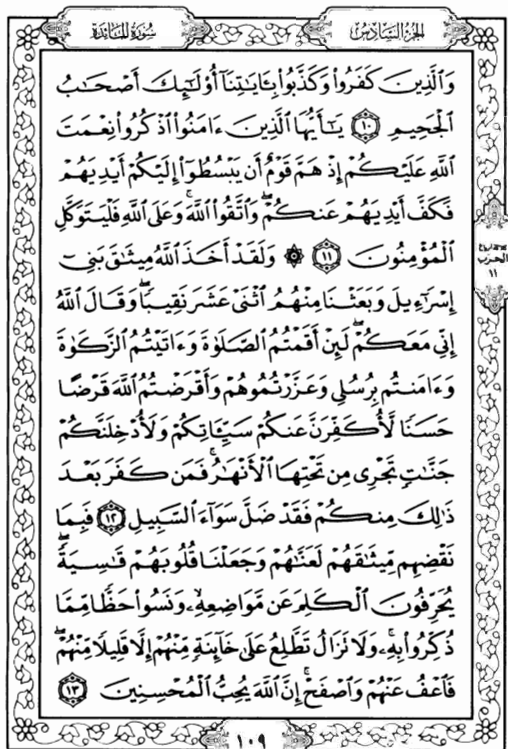 الجزء السادس
سورة المائدة
وَٱلَّذِينَ كَفَرُوا۟ وَكَذَّبُوا۟ بِـَٔايَـٰتِنَآ أُو۟لَـٰٓئِكَ أَصْحَـٰبُ
ٱلْجَحِيمِ ١٠ يَـٰٓأَيُّهَا ٱلَّذِينَ ءَامَنُوا۟ ٱذْكُرُوا۟ نِعْمَتَ
ٱللَّهِ عَلَيْكُمْ إِذْ هَمَّ قَوْمٌ أَن يَبْسُطُوٓا۟ إِلَيْكُمْ أَيْدِيَهُمْ
فَكَفَّ أَيْدِيَهُمْ عَنكُمْ ۖ وَٱتَّقُوا۟ ٱللَّهَ ۚ وَعَلَى ٱللَّهِ فَلْيَتَوَكَّلِ
ٱلْمُؤْمِنُونَ ١١ ۞ وَلَقَدْ أَخَذَ ٱللَّهُ مِيثَـٰقَ بَنِىٓ
إِسْرَٰٓءِيلَ وَبَعَثْنَا مِنْهُمُ ٱثْنَىْ عَشَرَ نَقِيبًا ۖ وَقَالَ ٱللَّهُ
إِنِّى مَعَكُمْ ۖ لَئِنْ أَقَمْتُمُ ٱلصَّلَوٰةَ وَءَاتَيْتُمُ ٱلزَّكَوٰةَ
وَءَامَنتُم بِرُسُلِى وَعَزَّرْتُمُوهُمْ وَأَقْرَضْتُمُ ٱللَّهَ قَرْضًا
حَسَنًا لَّأُكَفِّرَنَّ عَنكُمْ سَيِّـَٔاتِكُمْ وَلَأُدْخِلَنَّكُمْ
جَنَّـٰتٍ تَجْرِى مِن تَحْتِهَا ٱلْأَنْهَـٰرُ ۚ فَمَن كَفَرَ بَعْدَ
ذَٰلِكَ مِنكُمْ فَقَدْ ضَلَّ سَوَآءَ ٱلسَّبِيلِ ١٢ فَبِمَا
نَقْضِهِم مِّيثَـٰقَهُمْ لَعَنَّـٰهُمْ وَجَعَلْنَا قُلُوبَهُمْ قَـٰسِيَةً ۖ
يُحَرِّفُونَ ٱلْكَلِمَ عَن مَّوَاضِعِهِۦ ۙ وَنَسُوا۟ حَظًّا مِّمَّا
ذُكِّرُوا۟ بِهِۦ ۚ وَلَا تَزَالُ تَطَّلِعُ عَلَىٰ خَآئِنَةٍ مِّنْهُمْ إِلَّا قَلِيلًا مِّنْهُمْ ۖ
فَٱعْفُ عَنْهُمْ وَٱصْفَحْ ۚ إِنَّ ٱللَّهَ يُحِبُّ ٱلْمُحْسِنِينَ ١٣
الحزب
١١
١٠٩